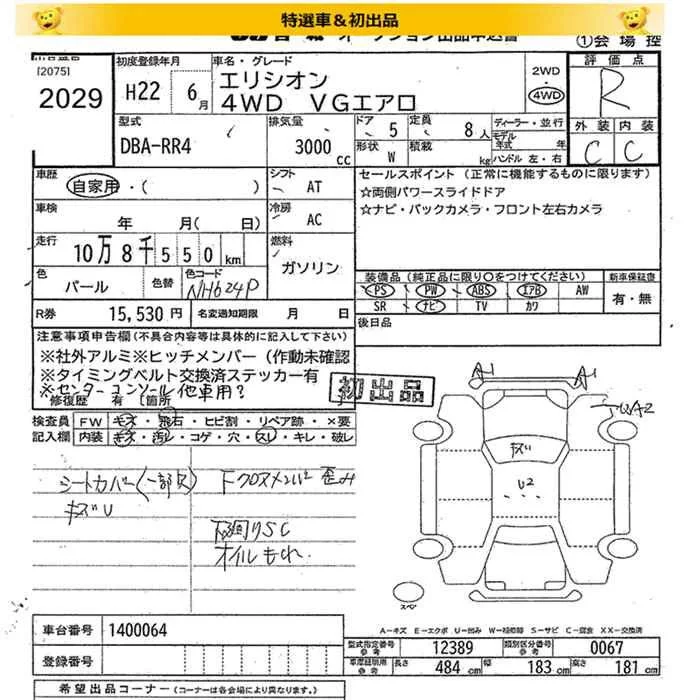 特選車&初出品
①会場控
[2075]
2029
初度登録年月
H22 6月
車名・グレード
エリシオン
4WD VGエアロ
2WD
4WD
評価点
R
外装 内装
C C
型式
DBA-RR4
排気量
3000 cc
ドア 5
定員 8人
形状 W
積載 kg
ディーラー・並行
モデル年式 年式
ハンドル 左・右
車歴
自家用・( )
シフト
AT
セールスポイント (正常に機能するものに限ります)
☆両側パワースライドドア
☆ナビ・バックカメラ・フロント左右カメラ
車検
年 月(日)
冷房
AC
走行
10万8千550km
燃料
ガソリン
色
パール
色替
色コード
NH624P
装備品(純正品に限り○をつけてください)
PS PW ABS エアB AW
SR ナビ TV カワ
新車保証書
有・無
R券 15,530円
名変通知期限 月 日
後日品
注意事項申告欄(不具合内容等は具体的に記入して下さい)
※社外アルミ※ヒッチメンバー(作動未確認
※タイミングベルト交換済ステッカー有
※センターコンソール他車用?
修復歴 有 [箇所
初出品
検査員記入欄
FW キズ・飛石・ヒビ割・リペア跡・×要
内装 キズ・汚レ・コゲ・穴・スレ・キレ・破レ
シートカバー(一部欠)
キズU
下クロスメンバー歪み
下廻りSC
オイルもれ.
A1
A1
UA2
U2
スペア
A-キズ E-エクボ U-凹み W-補修跡 S-サビ C-腐食 XX-交換済
車台番号 1400064
登録番号
型式指定番号 参考 12389
類別区分番号 参考 0067
車庫証明用 参考 長さ 484 cm 幅 183 cm 高さ 181 cm
希望出品コーナー(コーナーは各会場により異なります。)